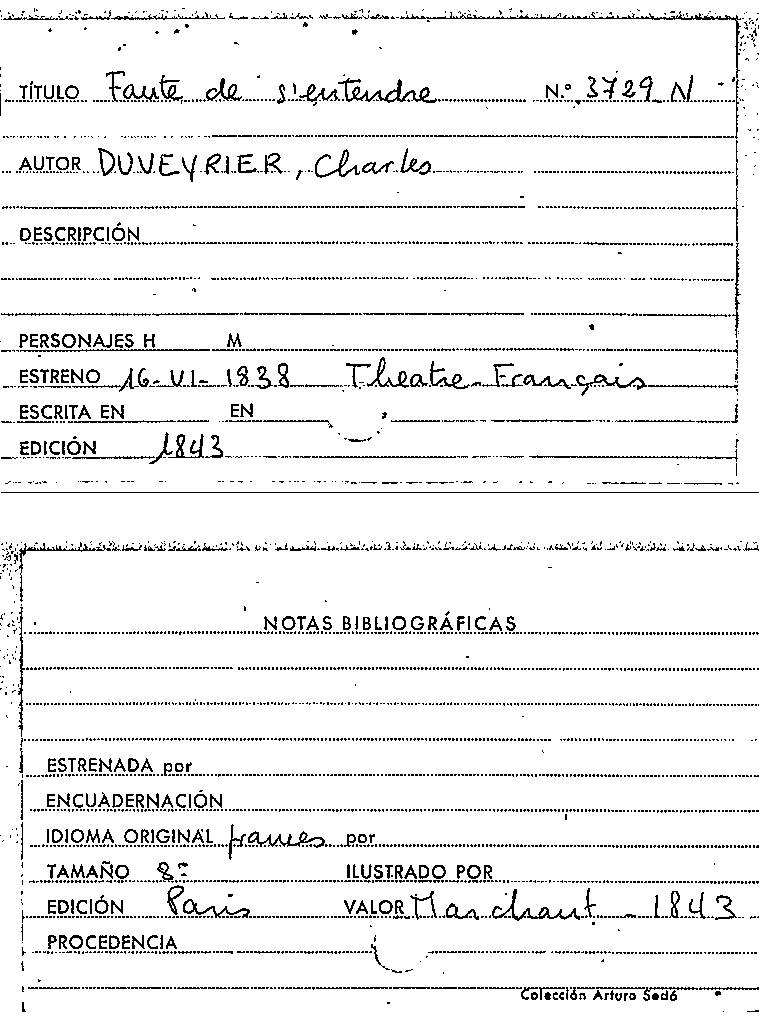 TÍTULO Faute de s'entendre N.º 3729 N
AUTOR DUVEYRIER, Charles
DESCRIPCIÓN
PERSONAJES H M
ESTRENO 16-VI-1838 Theatre-Français
ESCRITA EN EN
EDICIÓN 1843
NOTAS BIBLIOGRÁFICAS
ESTRENADA por
ENCUADERNACIÓN
IDIOMA ORIGINAL frances por
TAMAÑO 8º ILUSTRADO POR
EDICIÓN Paris VALOR Marchant - 1843
PROCEDENCIA
Colección Arturo Sedó